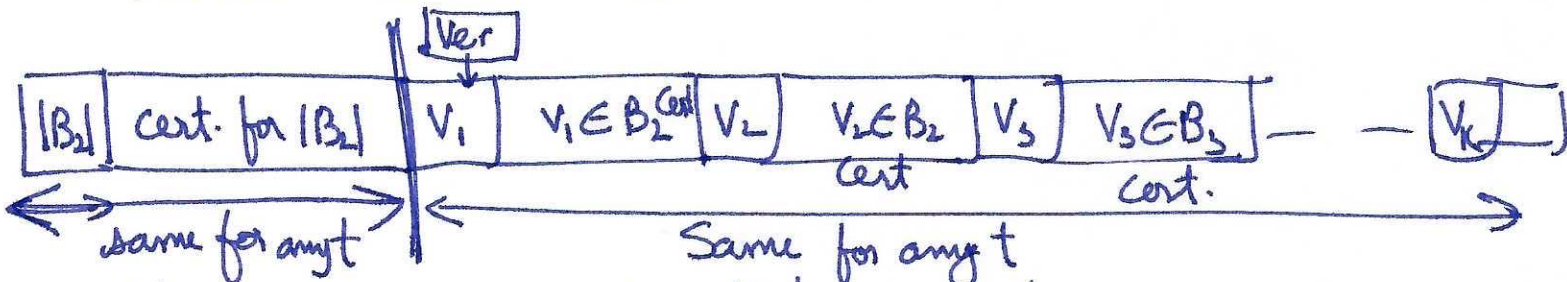 Ver
|B₂| cert. for |B₂| V₁ V₁ ∈ B₂ Cert V₂ V₂ ∈ B₂ V₃ V₃ ∈ B₃ — — Vₖ
Cert cert.
same for any t Same for any t